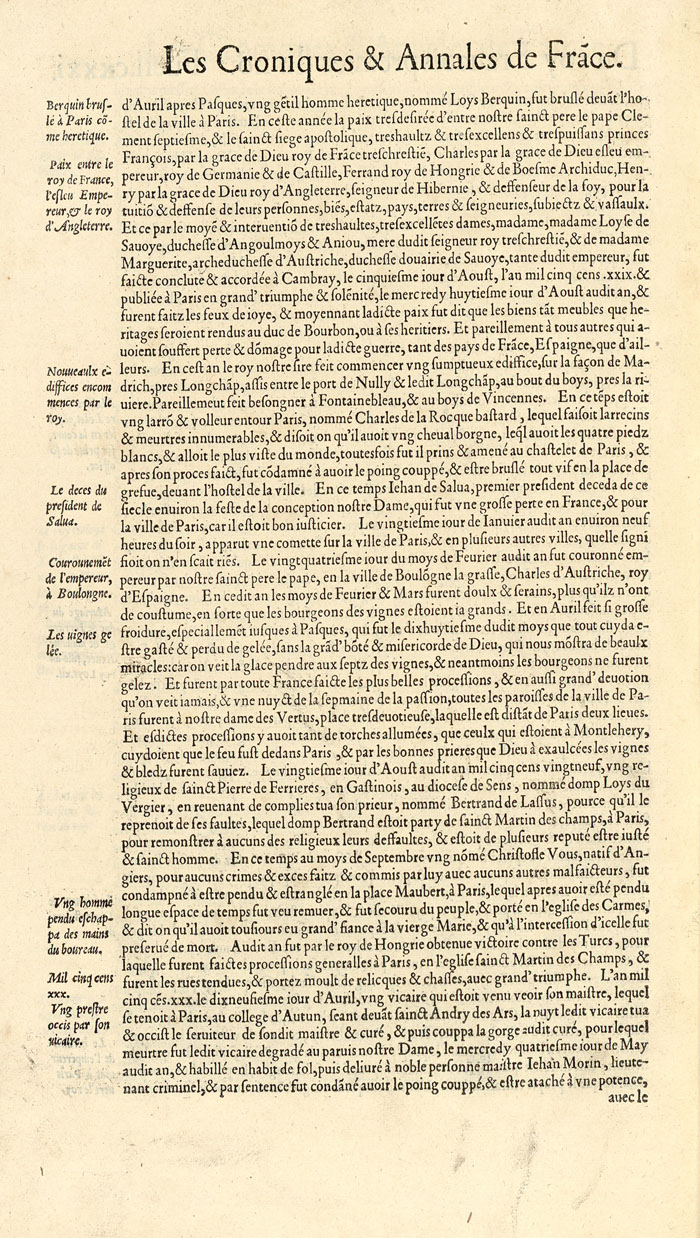 Les Croniques & Annales de Frãce.
Berquin brus-
lé à Paris cõ-
me heretique.
Paix entre le
roy de France,
l'esleu Empe-
reur, & le roy
d'Angleterre.
Nouueaulx e-
diffices encom
mences par le
roy.
Le deces du
president de
Salua.
Couronnemẽt
de l'empereur,
à Boulongne.
Les uignes ge
lée.
Vng homme
pendu eschap-
pa des mains
du boureau.
Mil cinq cens
xxx.
Vng prestre
occis par son
uicaire.
d'Auril apres Pasques, vng gẽtil homme heretique, nommé Loys Berquin, fut bruslé deuãt l'ho-
stel de la ville à Paris. En ceste année la paix tresdesirée d'entre nostre sainct pere le pape Cle-
ment septiesme, & le sainct siege apostolique, treshaultz & tresexcellens & trespuissans princes
François, par la grace de Dieu roy de Frãce treschrestiẽ, Charles par la grace de Dieu esleu em-
pereur, roy de Germanie & de Castille, Ferrand roy de Hongrie & de Boesme Archiduc, Hen-
ry par la grace de Dieu roy d'Angleterre, seigneur de Hibernie, & deffenseur de la foy, pour la
tuitiõ & deffense de leurs personnes, biẽs, estatz, pays, terres & seigneuries, subiectz & vassaulx.
Et ce par le moyẽ & interuentiõ de treshaultes, tresexcellẽtes dames, madame, madame Loyse de
Sauoye, duchesse d'Angoulmoys & Aniou, mere dudit seigneur roy treschrestiẽ, & de madame
Marguerite, archeduchesse d'Austriche, duchesse douairie de Sauoye, tante dudit empereur, fut
faicte conclute & accordée à Cambray, le cinquiesme iour d'Aoust, l'an mil cinq cens .xxix. &
publiée à Paris en grand' triumphe & solẽnité, le mercredy huytiesme iour d'Aoust audit an, &
furent faitz les feux de ioye, & moyennant ladicte paix fut dit que les biens tãt meubles que he-
ritages seroient rendus au duc de Bourbon, ou à ses heritiers. Et pareillement à tous autres qui a-
uoient souffert perte & dõmage pour ladicte guerre, tant des pays de Frãce, Espaigne, que d'ail-
leurs. En cest an le roy nostre sire feit commencer vng sumptueux ediffice, sur la façon de Ma-
drich, pres Longchãp, assis entre le port de Nully & ledit Longchãp, au bout du boys, pres la ri-
uiere. Pareillement feit besongner à Fontainebleau, & au boys de Vincennes. En ce tẽps estoit
vng larrõ & volleur entour Paris, nommé Charles de la Rocque bastard, lequel faisoit larrecins
& meurtres innumerables, & disoit on qu'il auoit vng cheual borgne, leq̃l auoit les quatre piedz
blancs, & alloit le plus viste du monde, toutesfois fut il prins & amené au chastelet de Paris, &
apres son proces faict, fut cõdamné à auoir le poing couppé, & estre bruslé tout vif en la place de
grefue, deuant l'hostel de la ville. En ce temps Iehan de Salua, premier president deceda de ce
siecle enuiron la feste de la conception nostre Dame, qui fut vne grosse perte en France, & pour
la ville de Paris, car il estoit bon iusticier. Le vingtiesme iour de Ianuier audit an enuiron neuf
heures du soir, apparut vne comette sur la ville de Paris, & en plusieurs autres villes, quelle signi
fioit on n'en scait riẽs. Le vingtquatriesme iour du moys de Feurier audit an fut couronné em-
pereur par nostre sainct pere le pape, en la ville de Boulõgne la grasse, Charles d'Austriche, roy
d'Espaigne. En cedit an les moys de Feurier & Mars furent doulx & serains, plus qu'ilz n'ont
de coustume, en sorte que les bourgeons des vignes estoient ia grands. Et en Auril feit si grosse
froidure, especiallemẽt iusques à Pasques, qui fut le dixhuytiesme dudit moys que tout cuyda e-
stre gasté & perdu de gelée, sans la grãd' bõté & misericorde de Dieu, qui nous mõstra de beaulx
miracles: car on veit la glace pendre aux septz des vignes, & neantmoins les bourgeons ne furent
gelez. Et furent par toute France faicte les plus belles processions, & en aussi grand' deuotion
qu'on veit iamais, & vne nuyct de la sepmaine de la passion, toutes les paroisses de la ville de Pa-
ris furent à nostre dame des Vertus, place tresdeuotieuse, laquelle est distãt de Paris deux lieues.
Et esdictes processions y auoit tant de torches allumées, que ceulx qui estoient à Montlehery,
cuydoient que le feu fust dedans Paris, & par les bonnes prieres que Dieu à exaulcées les vignes
& bledz furent sauuez. Le vingtiesme iour d'Aoust audit an mil cinq cens vingtneuf, vng re-
ligieux de sainct Pierre de Ferrieres, en Gastinois, au diocese de Sens, nommé domp Loys du
Vergier, en reuenant de complies tua son prieur, nommé Bertrand de Lassus, pource qu'il le
reprenoit de ses faultes, lequel domp Bertrand estoit party de sainct Martin des champs, à Paris,
pour remonstrer à aucuns des religieux leurs deffaultes, & estoit de plusieurs reputé estre iusté
& sainct homme. En ce temps au moys de Septembre vng nõmé Christofle Vous, natif d'An-
giers, pour aucuns crimes & exces faitz & commis par luy auec aucuns autres malfaicteurs, fut
condampné à estre pendu & estranglé en la place Maubert, à Paris, lequel apres auoir esté pendu
longue espace de temps fut veu remuer, & fut secouru du peuple, & porté en l'eglise des Carmes,
& dit on qu'il auoit tousiours eu grand' fiance à la vierge Marie, & qu'à l'intercession d'icelle fut
preserué de mort. Audit an fut par le roy de Hongrie obtenue victoire contre les Turcs, pour
laquelle furent faictes processions generalles à Paris, en l'eglise sainct Martin des Champs, &
furent les rues tendues, & portez moult de relicques & chasses, auec grand' triumphe. L'an mil
cinq cẽs.xxx. le dixneufiesme iour d'Auril, vng vicaire qui estoit venu veoir son maistre, lequel
se tenoit à Paris, au college d'Autun, seant deuãt sainct Andry des Ars, la nuyt ledit vicaire tua
& occist le seruiteur de sondit maistre & curé, & puis couppa la gorge audit curé, pour lequel
meurtre fut ledit vicaire degradé au paruis nostre Dame, le mercredy quatriesme iour de May
audit an, & habillé en habit de fol, puis deliuré à noble personne maistre Iehan Morin, lieute-
nant criminel, & par sentence fut condãné auoir le poing couppé, & estre ataché à vne potence,
auec le